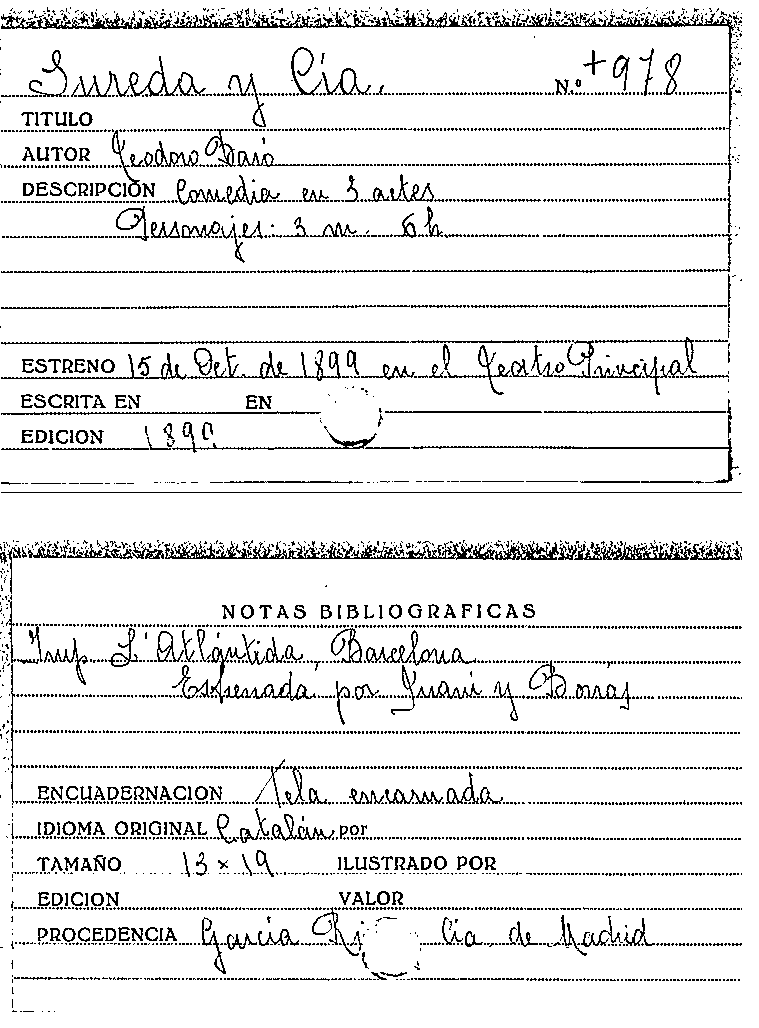 Sureda y Cía. N.º +978
TITULO
AUTOR Teodoro Baró
DESCRIPCIÓN Comedia en 3 actes
Personajes: 3 m. 6 h
ESTRENO 15 de Oct. de 1899 en el Teatro Principal
ESCRITA EN EN
EDICION 1899
NOTAS BIBLIOGRAFICAS
Imp. L'Atlántida, Barcelona
Estrenada por y Borrás
ENCUADERNACION Tela encarnada
IDIOMA ORIGINAL Catalán por
TAMAÑO 13 × 19 ILUSTRADO POR
EDICION VALOR
PROCEDENCIA García Cia de Madrid